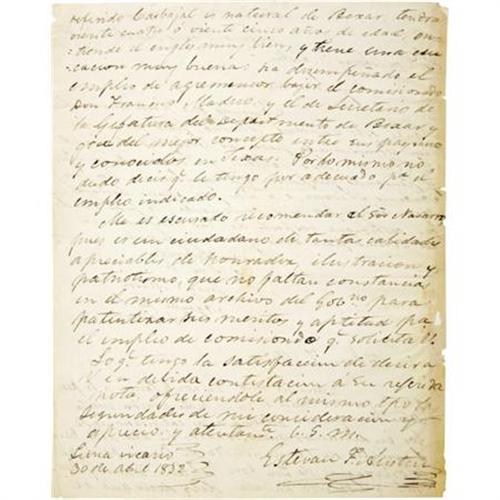 referido Carbajal es natural de Bexar, tendra
viente cuatro o viente cinco años de edad, en-
tiende el ingles muy bien, y tiene una edu-
cacion muy buena: ha desempeñado el
empleo de agrimensor bajo el comisionado
Don Madero, y el de Secretario de
la Gefatura del Departmento de Bexar y
goza del mejor concepto entre sus paysanos
y conocidos en Texas. Por lo mismo no
dudo decir q. le tengo por adecuado pa. el
empleo indicado.
Me es escusado recomendar al Sor. Navarro
pues es un ciudadano de tantas calidades
apreciables de honradez, ilustracion y
patriotismo, que no faltan constancias
en el mismo archivo del Gobno. para
patentizar sus meritos y aptitud pa.
el empleo de comisionado q. solicita
Lo q. tengo la satisfaccion de decir a
en debida contestacion a su referida
nota ofreciendole al mismo tpo. las
seguridades de mi consideracion y
aprecio y
30 de Abl 1832
Estevan F. Austin